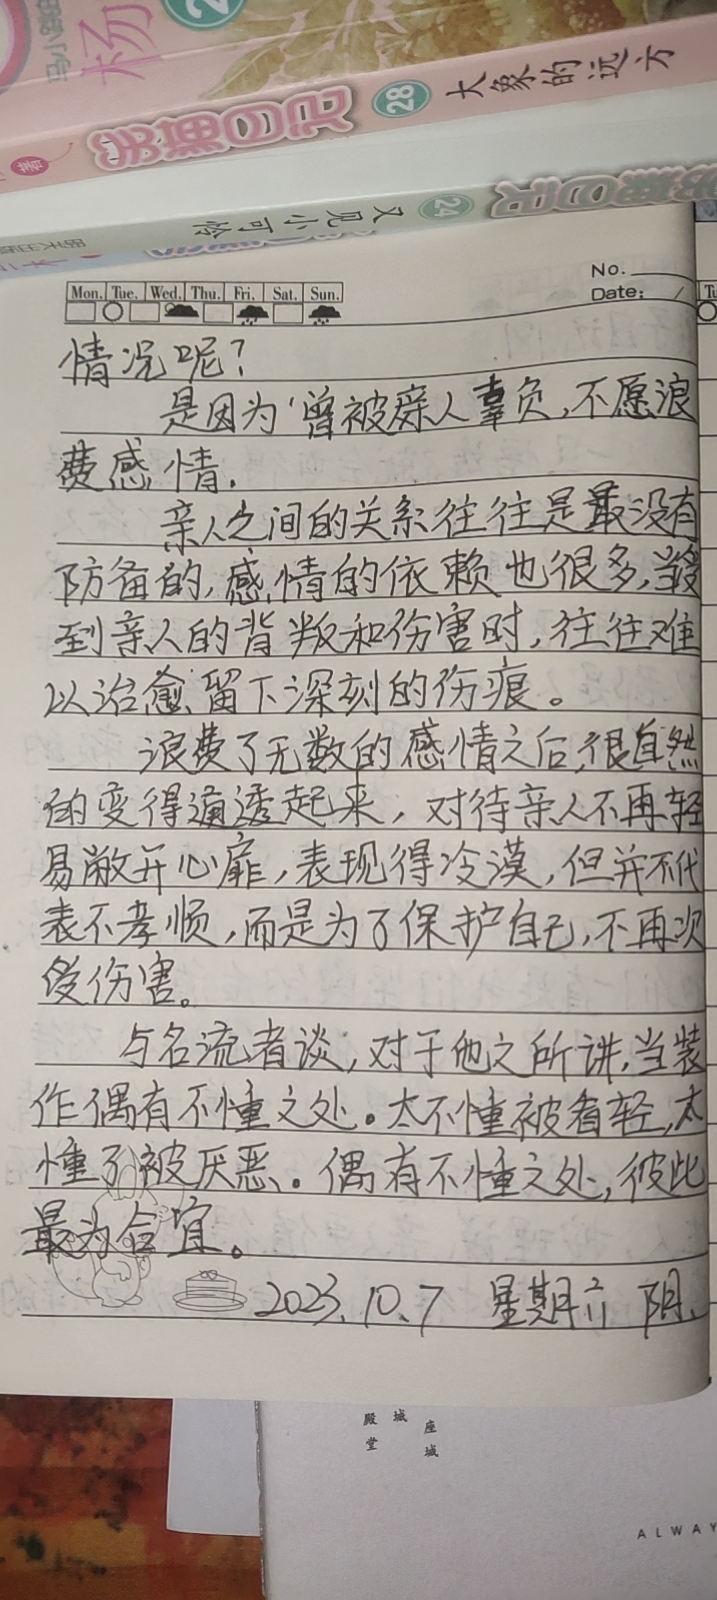 马小跳
杨
笑猫日记
28
大象的远方
著
24
又见小可怜
明天出版
No.
Date: /
Mon. Tue. Wed. Thu. Fri. Sat. Sun.
Tu
情况呢?
是因为曾被亲人辜负,不愿浪
费感情.
亲人之间的关系往往是最没有
防备的,感情的依赖也很多,当受
到亲人的背叛和伤害时,往往难
以治愈,留下深刻的伤痕。
浪费了无数的感情之后,很自然
的变得通透起来,对待亲人不再轻
易敞开心扉,表现得冷漠,但并不代
表不孝顺,而是为了保护自己,不再次
受伤害。
与名流者谈,对于他之所讲,当装
作偶有不懂之处。太不懂被看轻,太
懂了被厌恶。偶有不懂之处,彼此
最为合宜。
2023.10.7 星期六 阴.
殿堂
城
座城
ALWAY